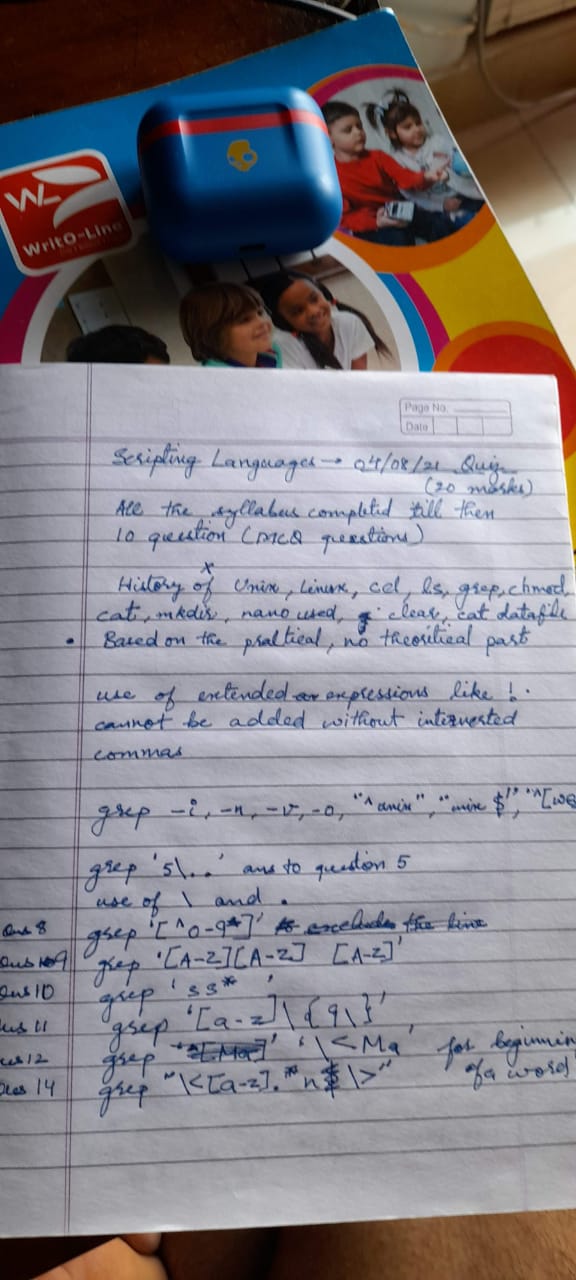 WL
WritO-Line
Page No.
Date
Scripting Languages → 04/08/21 Quiz
(20 marks)
All the syllabus completed till then
10 question (MCQ questions)
x
History of Unix, Linux, cd, ls, grep, chmod
cat, mkdir, nano used, clear, cat datafile
• Based on the praltical, no theoritical part
use of extended expressions like !.
cannot be added without interverted
commas
grep -i, -n, -v, -o, "^unix", "unix $",
grep '5\..' ans to question 5
use of \ and .
Ans 8 grep '[^0-9*]' to excludes the line
9 grep '[A-Z][A-Z] [A-Z]'
Qus 10 grep 'ss* '
11 grep '[a-z]\{9\}'
12 grep '^[Ma]' '\<Ma' for beginnin
of a word
14 grep "\<[a-z].*n$\>"